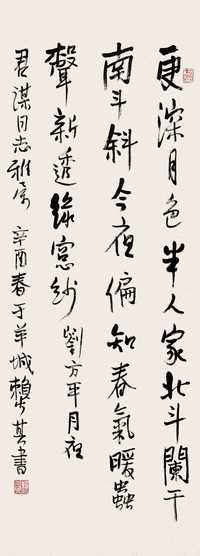 更深月色半人家北斗闌干
南斗斜今夜偏知春氣暖蟲
聲新透綠窗紗 劉方平月夜
君謀同志雅屬 辛酉春于羊城賴少其書